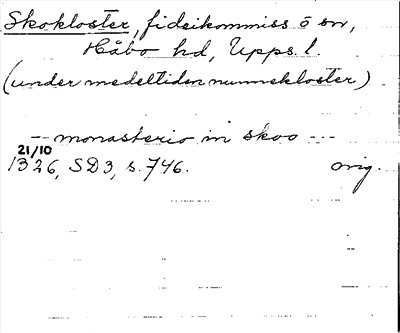 Skokloster, fideikommiss o sn,
Håbo hd, Upps. l.
(under medeltiden nunnekloster)
-- monasterio in skoo ---
21/10
1326, SD3, s. 746. orig.